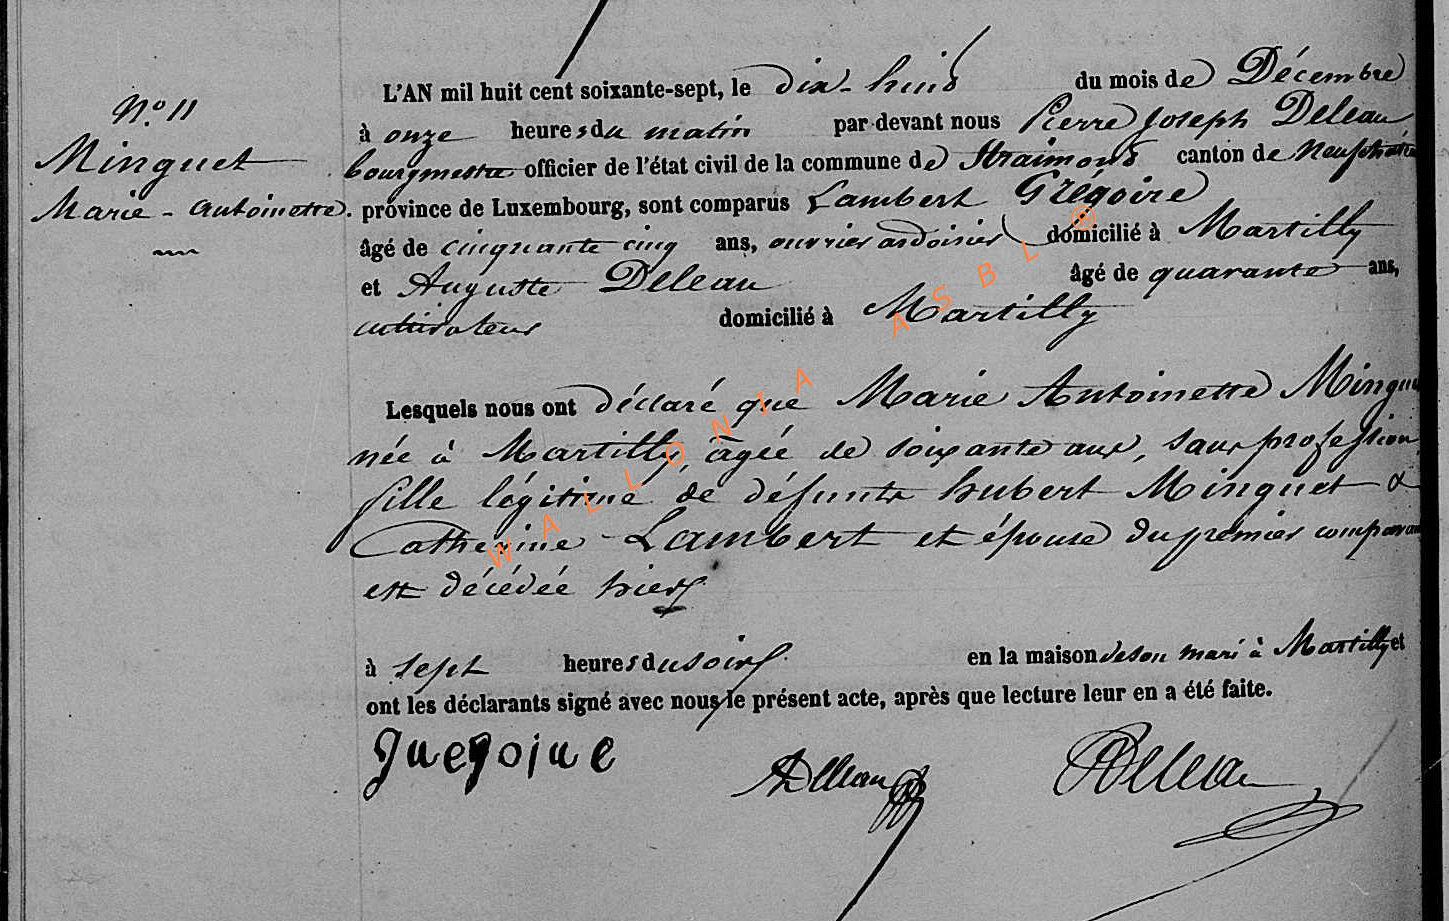 N.o 11
Minguet
Marie-Antoinette.
L'AN mil huit cent soixante-sept, le dix-huit du mois de Décembre
à onze heures du matin par devant nous Pierre Joseph Deleau
bourgmestre officier de l'état civil de la commune de Straimont canton de Neufchâteau
province de Luxembourg, sont comparus Lambert Grégoire
âgé de cinquante cinq ans, ouvrier ardoisier domicilié à Martilly
et Auguste Deleau âgé de quarante ans,
cultivateur domicilié à Martilly
Lesquels nous ont déclaré que Marie Antoinette Mingue
née à Martilly, âgée de soixante ans, sans profession,
fille légitime de défunts hubert Minguet &
Catherine Lambert et épouse du premier comparan
est décédée hier
à sept heures du soir en la maison de son mari à Martilly et
ont les déclarants signé avec nous le présent acte, après que lecture leur en a été faite.
Gregoire
ADeleau
Deleau
WALLONIA ASBL ®